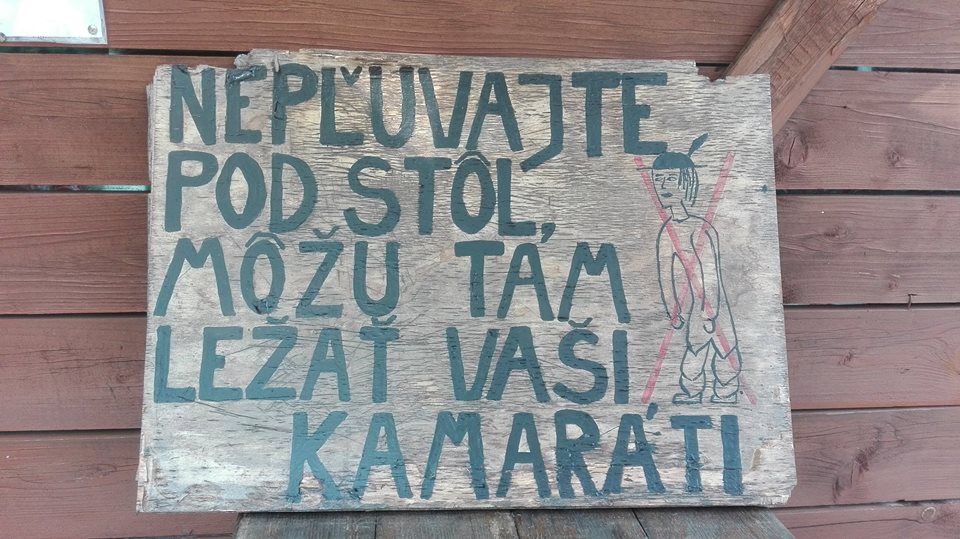 NEPĽUVAJTE
POD STÔL,
MÔŽU TAM
LEŽAŤ VAŠI
KAMARÁTI